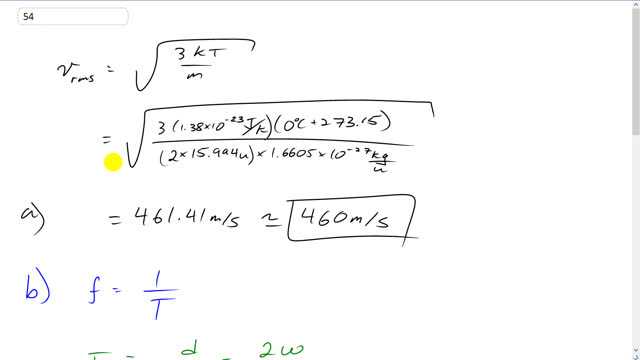 54
v_rms = √(3kT/m)
= √(3(1.38×10⁻²³ J/K)(0°C + 273.15) / (2×15.994u)×1.6605×10⁻²⁷ kg/u)
a) = 461.41 m/s ≃ 460 m/s
b) f = 1/T
T = d = 2w